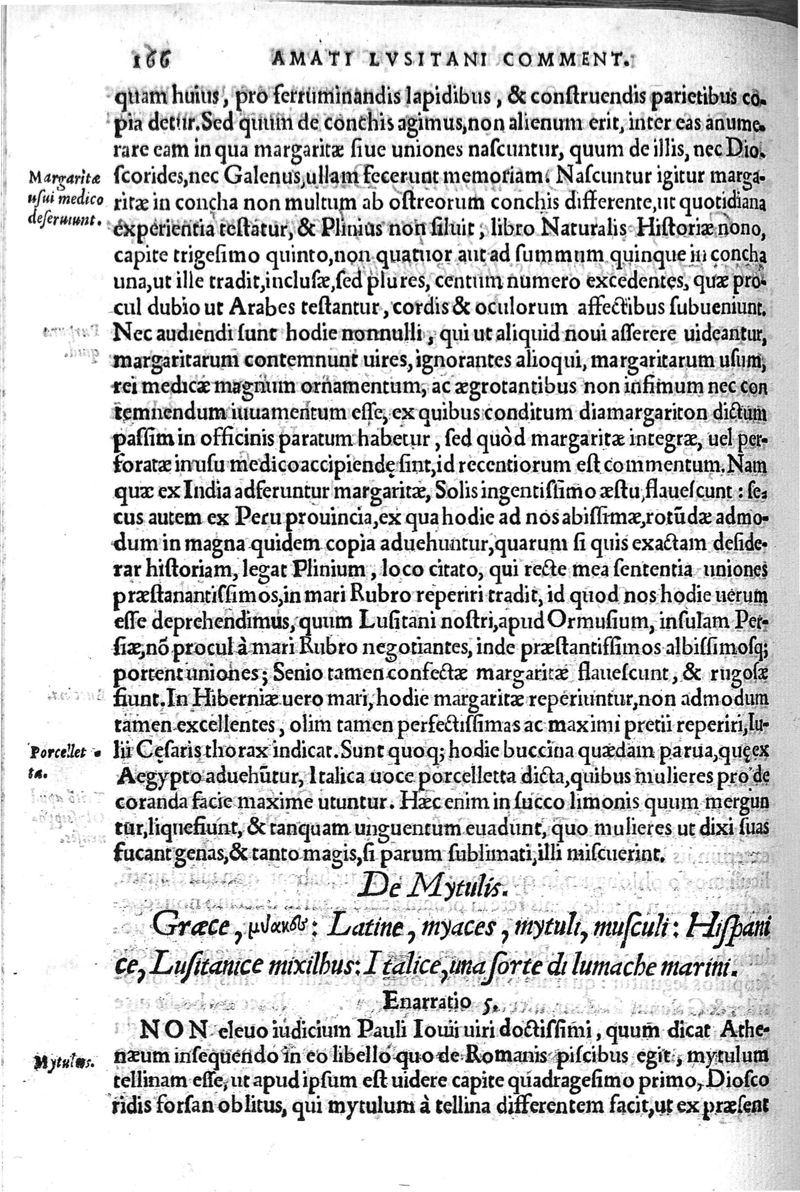 166 AMATI LVSITANI COMMENT.
quam huius, pro ferruminandis lapidibus, & construendis parietibus co-
pia detur. Sed quum de conchis agimus, non alienum erit, inter eas anume-
rare eam in qua margaritæ siue uniones nascuntur, quum de illis, nec Dio-
Margaritæ usui medico deseruiunt.
scorides, nec Galenus, ullam fecerunt memoriam. Nascuntur igitur marga-
ritæ in concha non multum ab ostreorum conchis differente, ut quotidiana
experientia testatur, & Plinius non siluit, libro Naturalis Historiæ nono,
capite trigesimo quinto, non quatuor aut ad summum quinque in concha
una, ut ille tradit, inclusæ, sed plures, centum numero excedentes, quæ pro-
cul dubio ut Arabes testantur, cordis & oculorum affectibus subueniunt.
Nec audiendi sunt hodie nonnulli, qui ut aliquid noui asserere uideantur,
margaritarum contemnunt uires, ignorantes alioqui, margaritarum usum,
rei medicæ magnum ornamentum, ac ægrotantibus non infimum nec con
temnendum iuuamentum esse, ex quibus conditum diamargariton dictum
passim in officinis paratum habetur, sed quòd margaritæ integræ, uel per-
foratæ in usu medico accipiendę sint, id recentiorum est commentum. Nam
quæ ex India adferuntur margaritæ, Solis ingentissimo æstu, flauescunt: se-
cus autem ex Peru prouincia, ex qua hodie ad nos abissimæ, rotūdæ admo-
dum in magna quidem copia aduehuntur, quarum si quis exactam deside-
rar historiam, legat Plinium, loco citato, qui recte mea sententia uniones
præstanantissimos, in mari Rubro reperiri tradit, id quod nos hodie uerum
esse deprehendimus, quum Lusitani nostri, apud Ormusium, insulam Per-
siæ, nō procul à mari Rubro negotiantes, inde præstantissimos albissimosq;
portent uniones; Senio tamen confectæ margaritæ flauescunt, & rugosæ
fiunt. In Hiberniæ uero mari, hodie margaritæ reperiuntur, non admodum
tamen excellentes, olim tamen perfectissimas ac maximi pretii reperiri, Iu-
Porcelletta.
lii Cęsaris thorax indicat. Sunt quoq; hodie buccina quædam parua, quę ex
Aegypto aduehūtur, Italica uoce porcelletta dicta, quibus mulieres pro de
coranda facie maxime utuntur. Hæc enim in succo limonis quum mergun
tur, liquefiunt, & tanquam unguentum euadunt, quo mulieres ut dixi suas
fucant genas, & tanto magis, si parum sublimati, illi miscuerint.
De Mytulis.
Græce, μύακες: Latine, myaces, mytuli, musculi: Hispani
ce, Lusitanice mixilhus: Italice, una sorte di lumache marini.
Enarratio 5.
NON eleuo iudicium Pauli Iouii uiri doctissimi, quum dicat Athe-
Mytulus.
næum insequendo in eo libello quo de Romanis piscibus egit, mytulum
tellinam esse, ut apud ipsum est uidere capite quadragesimo primo, Diosco
ridis forsan oblitus, qui mytulum à tellina differentem facit, ut ex præsent